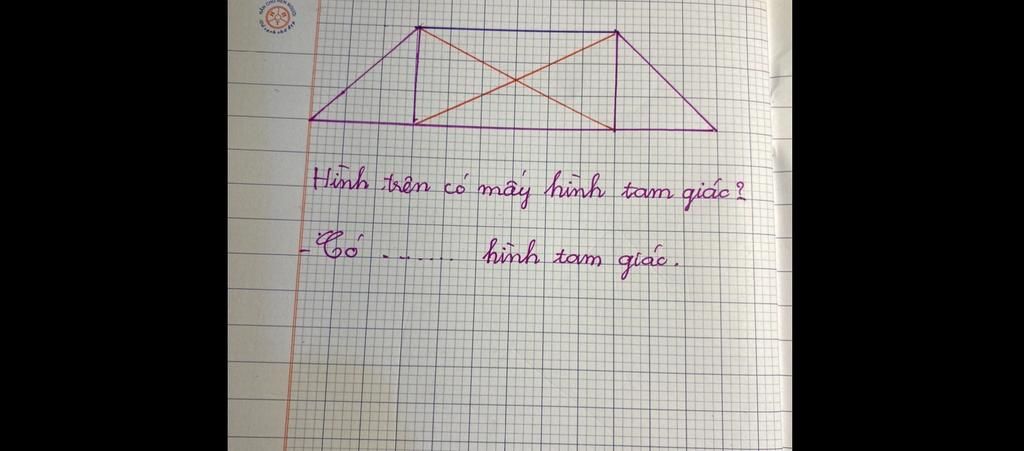 Hình trên có mấy hình tam giác?
- Có ....... hình tam giác.